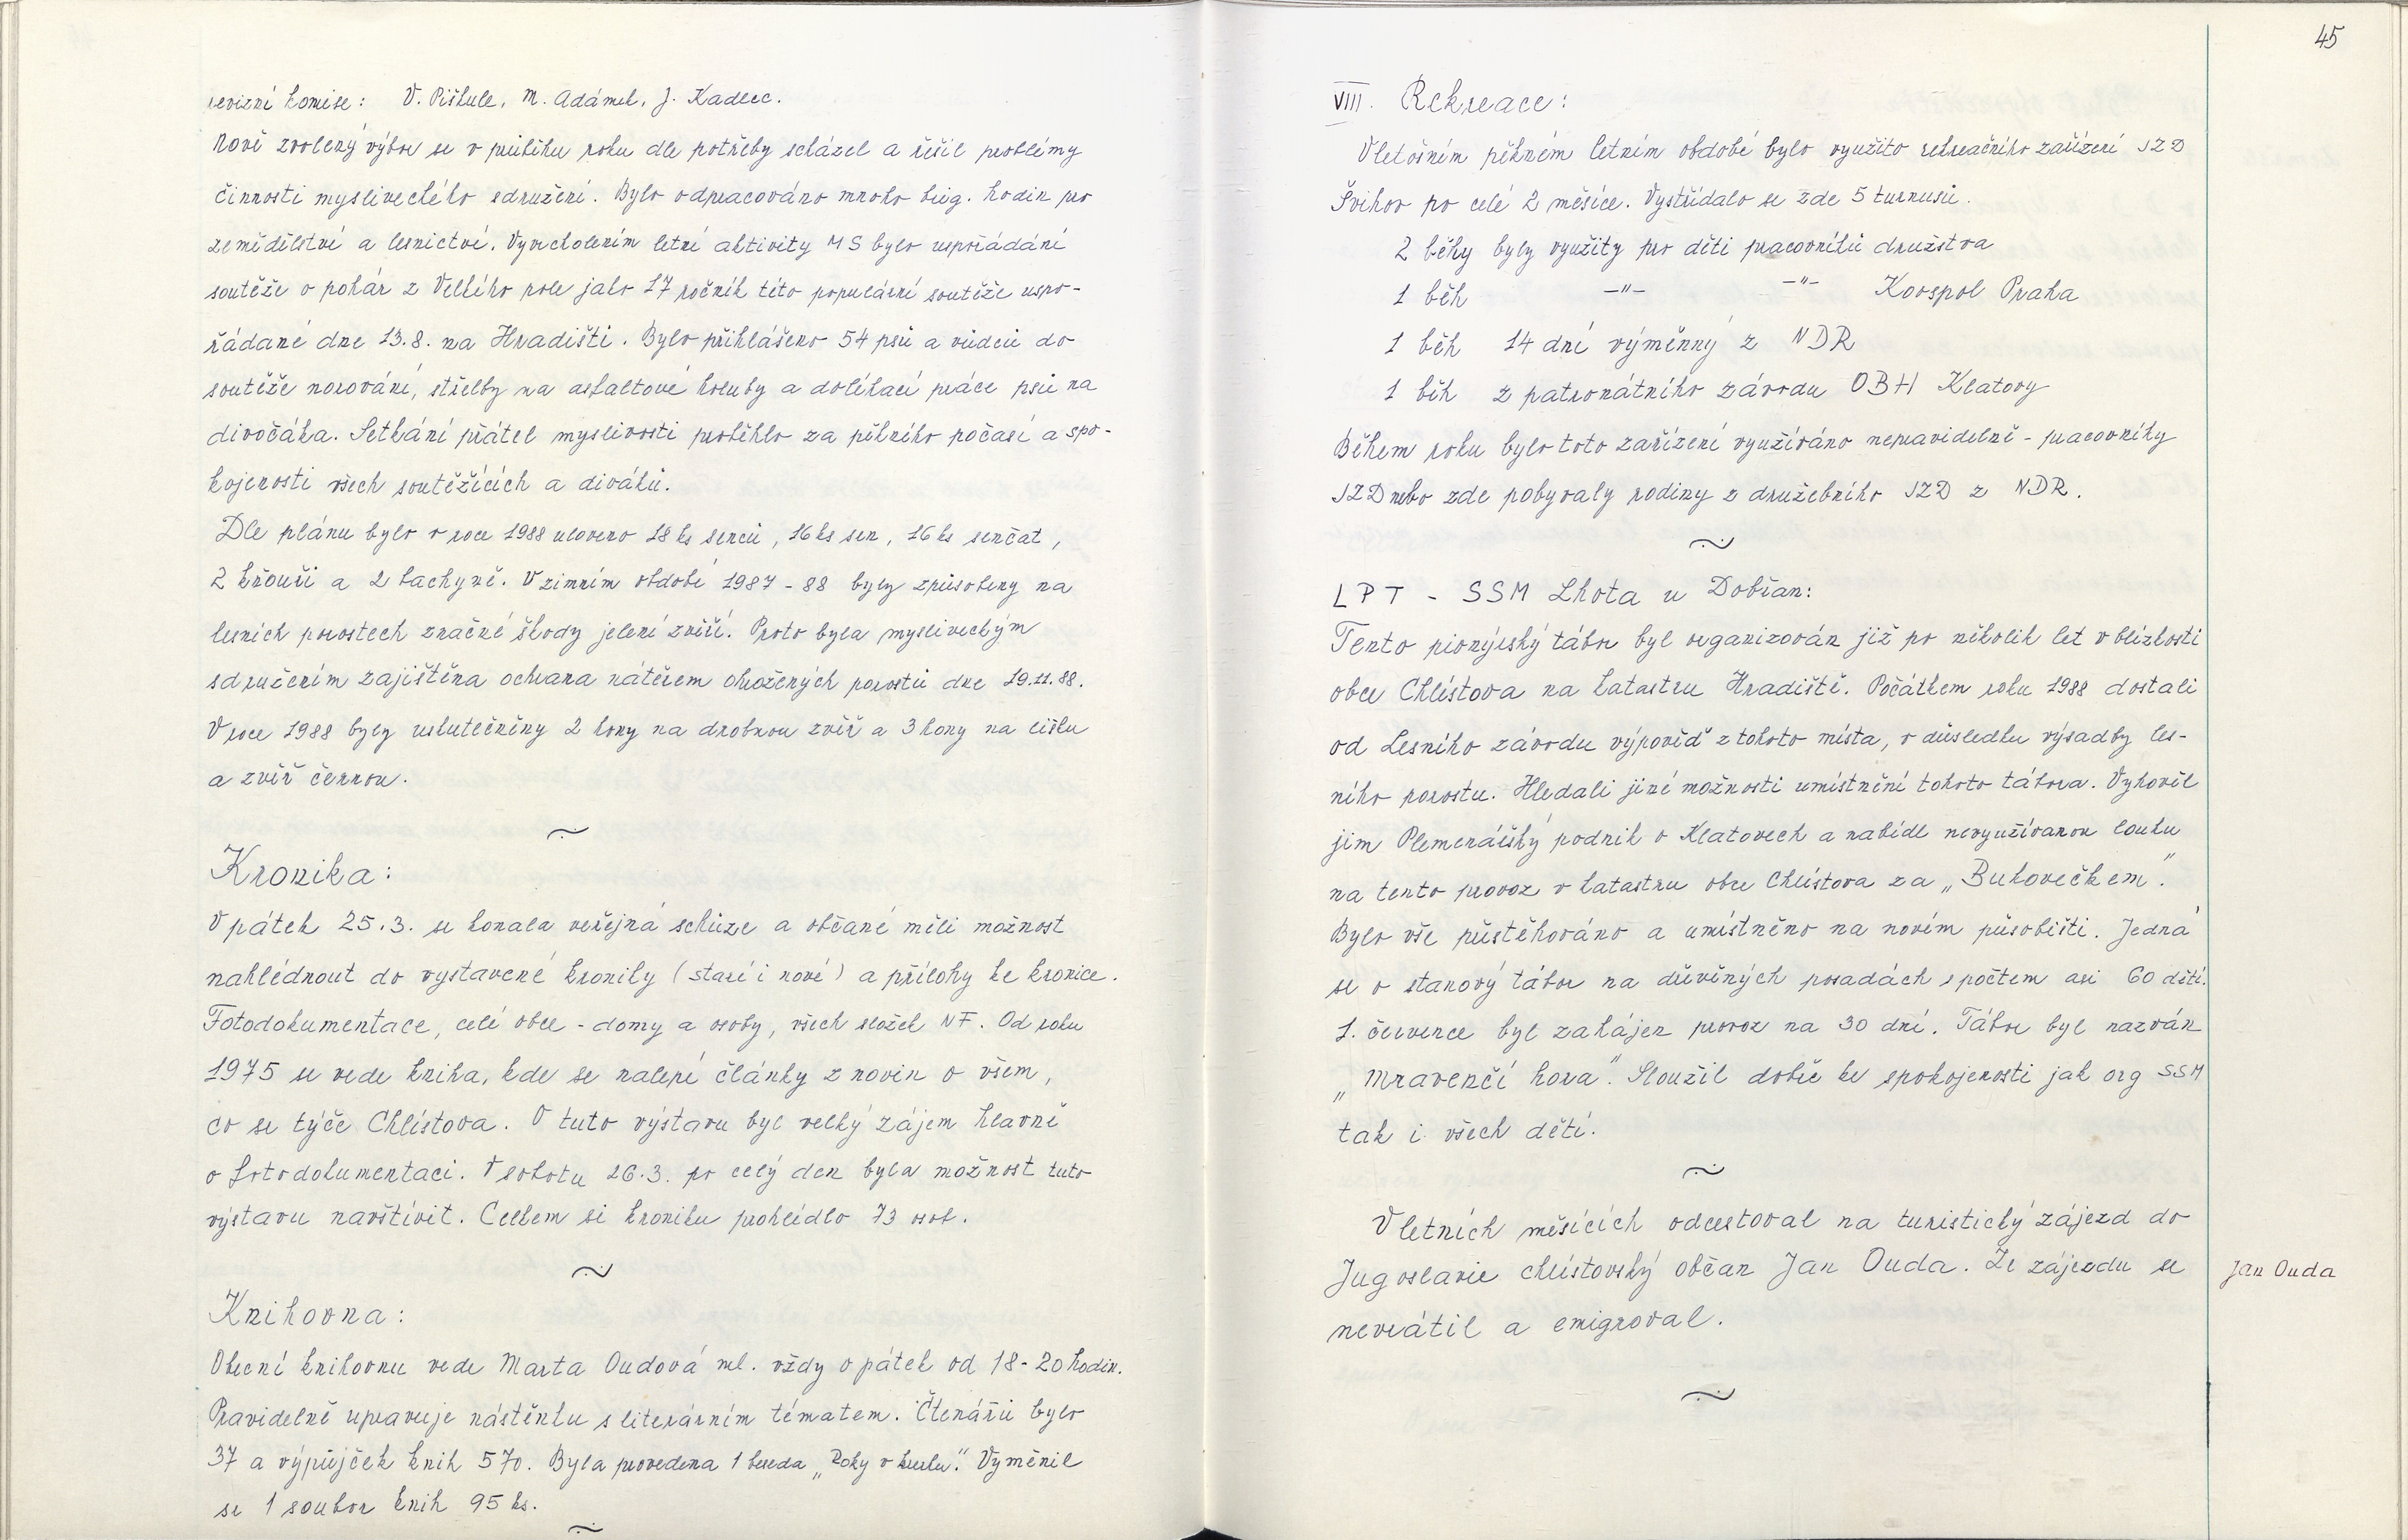 revizní komise: V. Piškule, M. Adámek, J. Kadlec.
Nově zvolený výbor se v průběhu roku dle potřeby scházel a řešil problémy
činnosti mysliveckého sdružení. Bylo odpracováno mnoho brig. hodin pro
zemědělství a lesnictví. Vyvrcholením letní aktivity MS bylo uspořádání
soutěže o pohár z Velkého pole jako 17 ročník této populární soutěže uspo-
řádané dne 13.8. na Hradišti. Bylo přihlášeno 54 psů a vůdců do
soutěže norování, střelby na asfaltové holuby a dohledací práce psů na
divočáka. Setkání přátel myslivosti proběhlo za pěkného počasí a spo-
kojenosti všech soutěžících a diváků.
Dle plánu bylo v roce 1988 uloveno 18 ks srnců, 16 ks srn, 16 ks srnčat,
2 kňouři a 2 bachyně. V zimním období 1987 - 88 byly způsobeny na
lesních porostech značné škody jelení zvěří. Proto byla mysliveckým
sdružením zajištěna ochrana nátěrem ohrožených porostů dne 19.11.88.
V roce 1988 byly uskutečněny 2 hony na drobnou zvěř a 3 hony na lišku
a zvěř černou.
~
Kronika:
V pátek 25.3. se konala veřejná schůze a občané měli možnost
nahlédnout do vystavené kroniky (staré i nové) a přílohy ke kronice.
Fotodokumentace, celé obce - domy a osoby, všech složek NF. Od roku
1975 se vede kniha, kde se nalepí články z novin o všem,
co se týče Chlístova. O tuto výstavu byl velký zájem hlavně
o fotodokumentaci. V sobotu 26.3. po celý den byla možnost tuto
výstavu navštívit. Celkem si kroniku prohlédlo 73 osob.
~
Knihovna:
Obecní knihovnu vede Marta Oudová ml. vždy v pátek od 18-20 hodin.
Pravidelně upravuje nástěnku s literárním tématem. Čtenářů bylo
37 a výpůjček knih 570. Byla provedena 1 beseda „Roky v kruhu". Vyměnil
se 1 soubor knih 95 ks.
~
45
VIII. Rekreace:
V letošním pěkném letním období bylo využito rekreačního zařízení JZD
Švihov po celé 2 měsíce. Vystřídalo se zde 5 turnusů.
2 běhy byly využity pro děti pracovníků družstva
1 běh -"- -"- Koospol Praha
1 běh 14 dní výměnný z NDR
1 běh z patronátního závodu OBH Klatovy
Během roku bylo toto zařízení využíváno nepravidelně - pracovníky
JZD nebo zde pobývaly rodiny z družebního JZD z NDR.
~
LPT - SSM Lhota u Dobřan:
Tento pionýrský tábor byl organizován již po několik let v blízkosti
obce Chlístova na katastru Hradiště. Počátkem roku 1988 dostali
od Lesního závodu výpověď z tohoto místa, v důsledku výsadby les-
ního porostu. Hledali jiné možnosti umístnění tohoto tábora. Vyhověl
jim Plemenářský podnik v Klatovech a nabídl nevyužívanou louku
na tento provoz v katastru obce Chlístova za „Bukovečkem".
Bylo vše přestěhováno a umístněno na novém působišti. Jedná
se o stanový tábor na dřevěných posadách s počtem asi 60 dětí.
1. července byl zahájen provoz na 30 dní. Tábor byl nazván
„Mravenčí hora". Sloužil dobře ke spokojenosti jak org SSM
tak i všech dětí.
~
V letních měsících odcestoval na turistický zájezd do
Jugoslavie chlístovský občan Jan Ouda. Ze zájezdu se
nevrátil a emigroval.
Jan Ouda
~